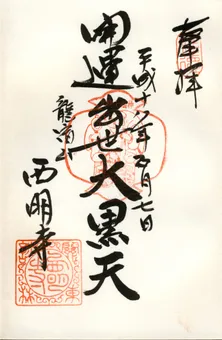 奉拝
平成十八年五月七日
開運出世大黒天
龍斎山
西明寺